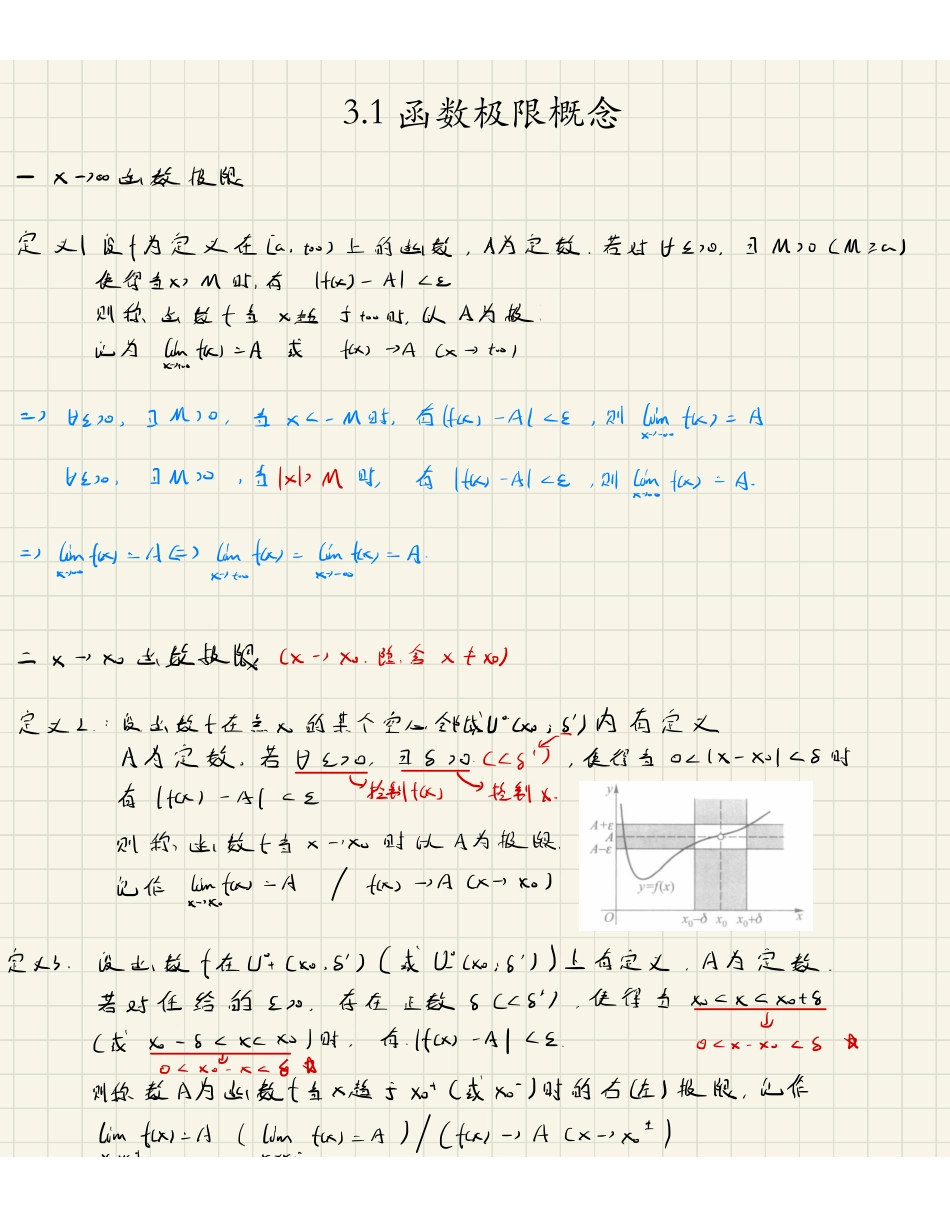 3.1 函数极限概念
一 x→∞ 函数极限
定义1 设f为定义在[a,+∞)上的函数,A为定数.若对∀ε>0,∃M>0(M≥a)
使得当x>M时,有 |f(x)-A|<ε
则称函数f当x趋于+∞时,以A为极.
记为 lim f(x)=A 或 f(x)→A (x→+∞)
x→+∞
=> ∀ε>0, ∃M>0, 当x<-M时, 有|f(x)-A|<ε,则 lim f(x)=A
x→-∞
∀ε>0, ∃M>0,当|x|>M时, 有|f(x)-A|<ε,则 lim f(x)=A.
x→∞
=> lim f(x)=A <=> lim f(x)=lim f(x)=A.
x→∞ x→+∞ x→-∞
二 x→x₀ 函数极限 (x→x₀.隐含 x≠x₀)
定义2.:设函数f在点x₀的某个空心邻域U°(x₀;δ')内有定义
A为定数.若∀ε>0, ∃δ>0.(<δ'),使得当0<|x-x₀|<δ时
→控制f(x) →控制x.
有|f(x)-A|<ε
则称函数f当x→x₀时以A为极限.
记作 lim f(x)=A / f(x)→A (x→x₀)
x→x₀
y
A+ε
A
A−ε
y=f(x)
O x₀−δ x₀ x₀+δ x
定义3. 设函数f在U°₊(x₀.δ')(或U°₋(x₀;δ'))上有定义.A为定数.
若对任给的ε>0,存在正数δ(<δ'),使得当 x₀<x<x₀+δ
↓
0<x-x₀<δ ☆
(或 x₀-δ<x<x₀)时,有.|f(x)-A|<ε.
↓
0<x₀-x<δ ☆
则称数A为函数f当x趋于x₀⁺(或x₀⁻)时的右(左)极限,记作
lim f(x)=A ( lim f(x)=A )/(f(x)→A (x→x₀^±)